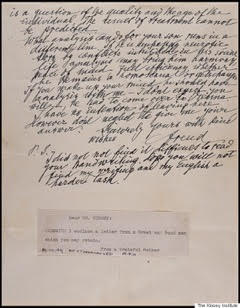 is a question of the quality and the age of the
individual. The result of treatment cannot
be predicted.
What analysis can do for your son runs in a
different line. If he is unhappy, neurotic,
torn by conflicts, inhibited in his social
life, analysis may bring him harmony,
peace of mind, full efficiency whether
he remains a homosexual or gets changed.
If you make up your mind he should have
analysis with me — I don't expect you
will — he has to come over to Vienna.
I have no intention of leaving here.
However don't neglect to give me your
answer.
Sincerely yours with kind
wishes
Freud
P.S. I did not find it difficult to read
your handwriting. Hope you will not
find my writing and my English a
harder task.
Dear
I enclose a letter from a Great man
which you may retain.
From a Grateful Mother
The Kinsey Institute